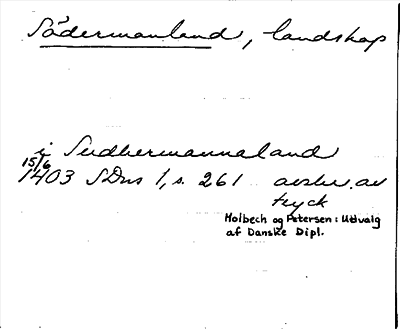 Södermanland, landskap
i Sudhermannaland
15/6
1403 SDns 1, s. 261 avskr. av
tryck
Holbech og Petersen: Udvalg
af Danske Dipl.